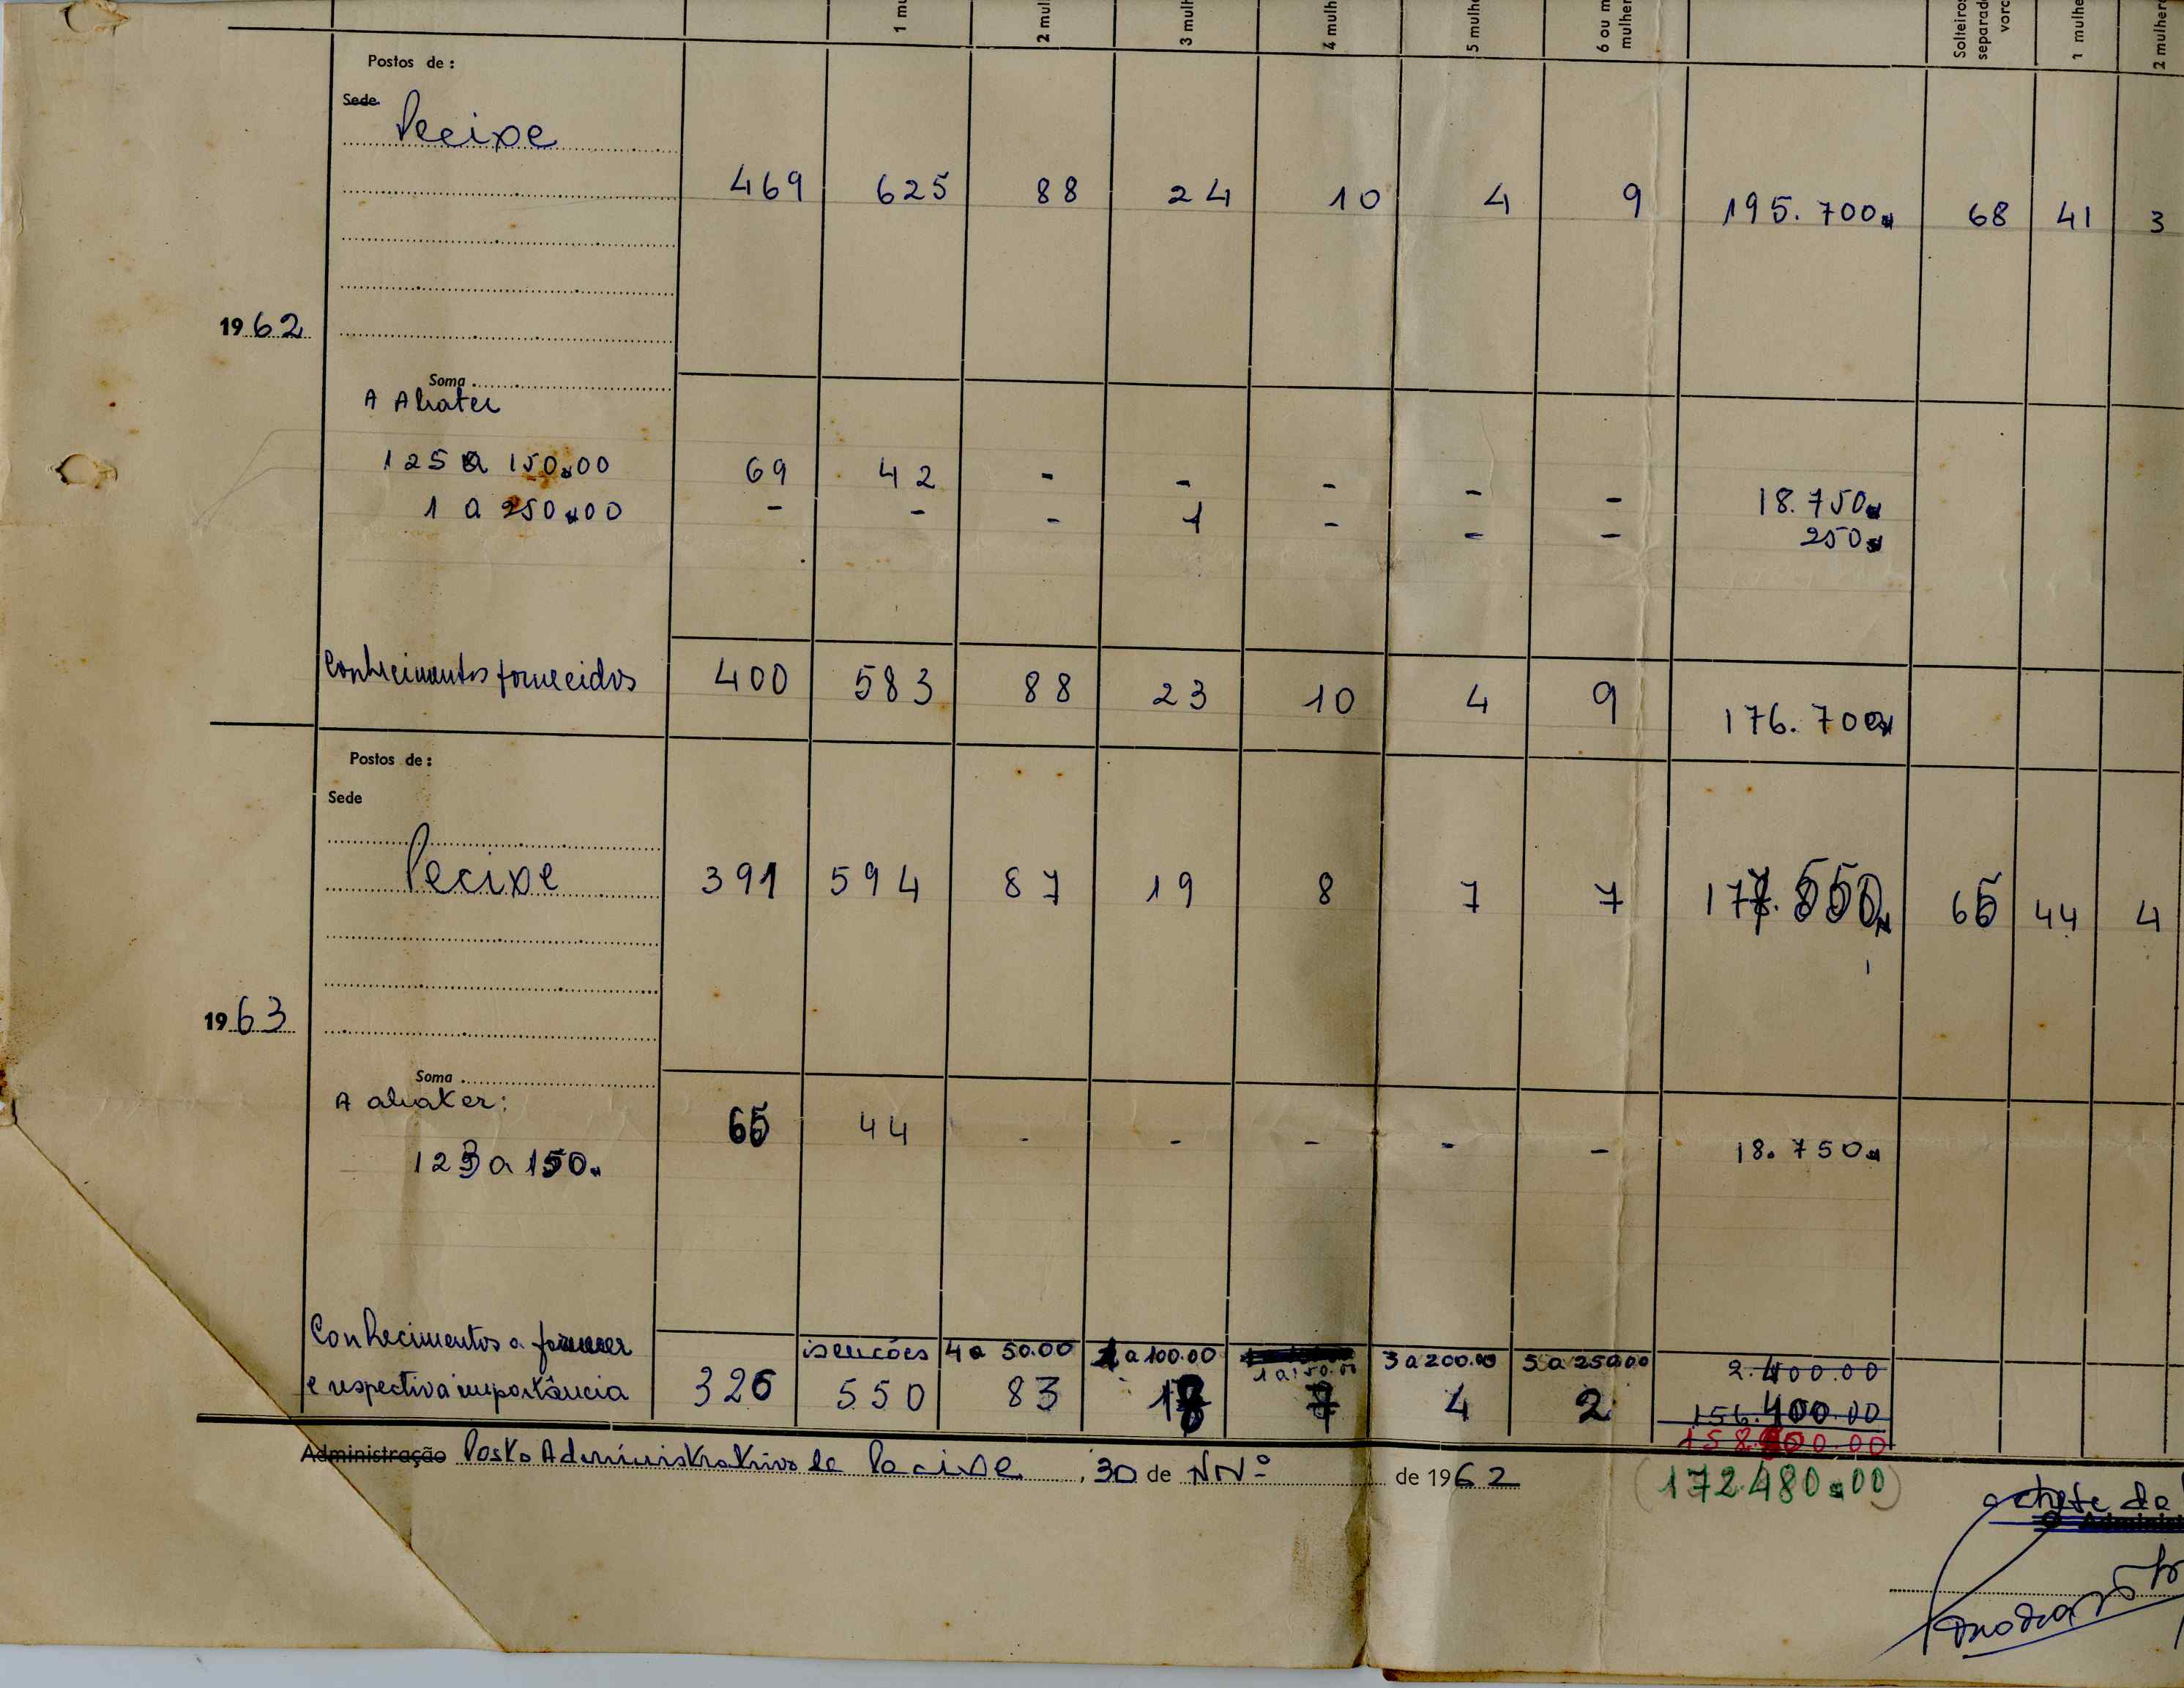 1 mu 2 mul 3 mulh 4 mulh 5 mulhe 6 ou m mulher Solteiros separad vorc 1 mulhe 2 mulhere
Postos de :
Sede
Pecixe
469 625 88 24 10 4 9 195.700 68 41 3
1962
Soma
A Abater
125 a 150$00 69 42 - - - - - 18.750$
1 a 250$00 - - - 1 - - - 250$
Conhecimentos fornecidos 400 583 88 23 10 4 9 176.700$
Postos de :
Sede
Pecixe 391 594 87 19 8 7 7 65 44 4
1963
Soma
A abater: 65 44 - - - - - 18.750$
a 150$
Conhecimentos a fornecer isenções 4 a 50.00 a 100.00 3 a 200.00 5 a 250.00 2.400.00
e respectiva importância 326 550 83 4 2 156.400.00
Administração Posto Administrativo de Pecixe, 30 de de 1962 (172.480$00)
o chefe do
O Administ